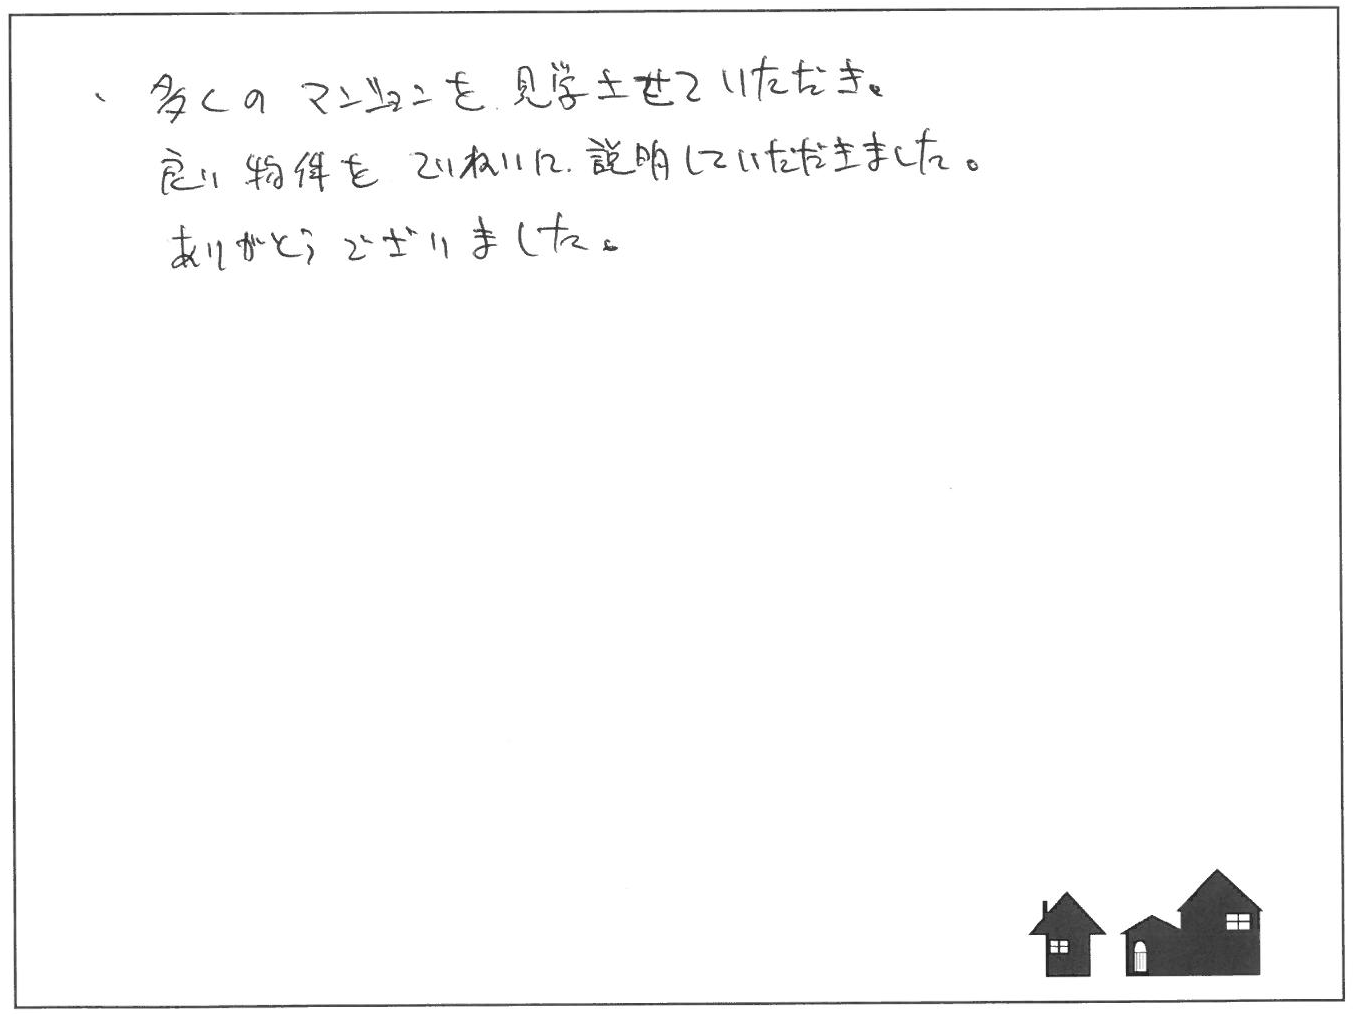 、多くのマンションを見学させていただき。
良い物件をていねいに説明していただきました。
ありがとうございました。